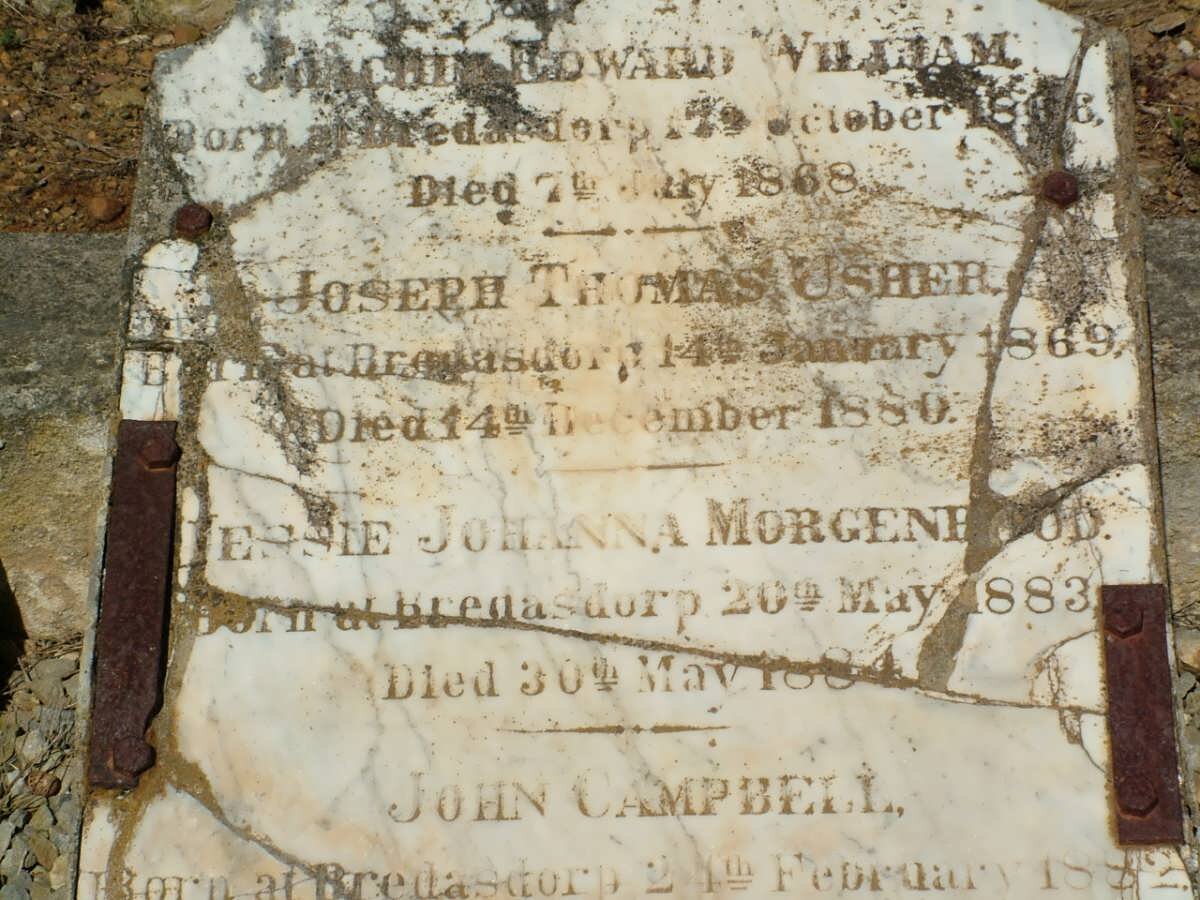 JOACHIM EDWARD WILLIAM.
Born at Bredasdorp 17th October 1866,
Died 7th July 1868
JOSEPH THOMAS USHER.
Born at Bredasdorp 14th January 1869,
Died 14th December 1880.
JESSIE JOHANNA MORGENROOD.
Born at Bredasdorp 20th May 1883
Died 30th May 1884.
JOHN CAMPBELL,
Born at Bredasdorp 24th February